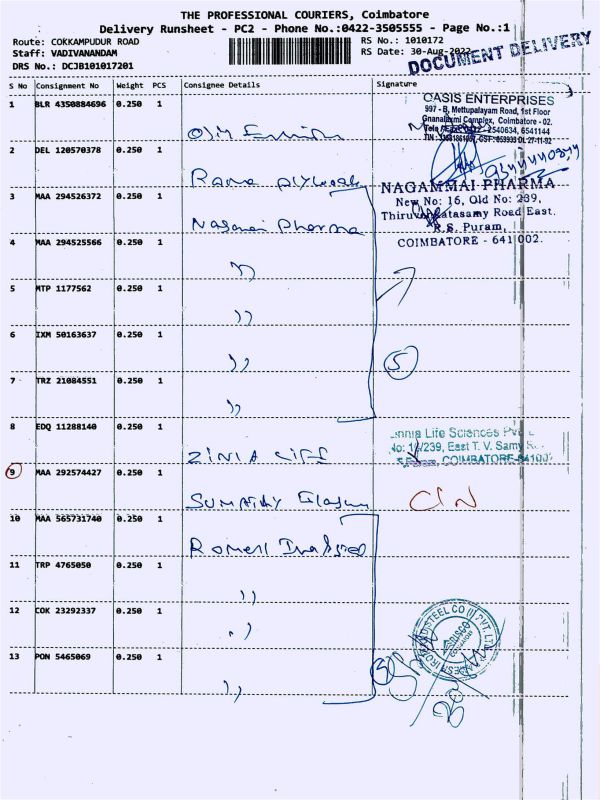 THE PROFESSIONAL COURIERS, Coimbatore
Delivery Runsheet - PC2 - Phone No.:0422-3505555 - Page No.:1
Route: COKKAMPUDUR ROAD
Staff: VADIVANANDAM
DRS No.: DCJB101017201
RS No.: 1010172
RS Date: 30-Aug-2022
DOCUMENT DELIVERY
S No Consignment No Weight PCS Consignee Details Signature
1 BLR 4350884696 0.250 1
OASIS ENTERPRISES
997 - B, Mettupalayam Road, 1st Floor
Gnanalaxmi Complex, Coimbatore - 02.
2540634, 6541144
2 DEL 120570378 0.250 1 Rama
3 MAA 294526372 0.250 1 Nagamai Pharma
NAGAMMAI PHARMA
New No: 16, Old No: 239,
Thiruvenkatasamy Road East.
R.S. Puram,
COIMBATORE - 641 002.
4 MAA 294525566 0.250 1 ,,
5 MTP 1177562 0.250 1 ,,
6 IXM 50163637 0.250 1 ,,
5
7 TRZ 21084551 0.250 1 ,,
8 EDQ 11288140 0.250 1 ZINIA LIFE
Life Sciences Pvt
No: 16/239, East T. V. Samy
COIMBATORE-64100
9 MAA 292574427 0.250 1 SUMATHY
10 MAA 565731740 0.250 1
11 TRP 4765050 0.250 1 ,,
12 COK 23292337 0.250 1 ,,
13 PON 5465069 0.250 1 ,,
STEEL CO (I) PVT. LTD